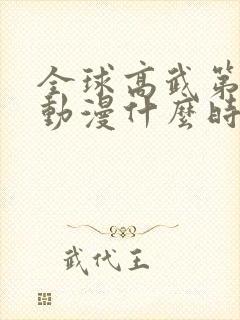 全球高武第
動漫什麼時
武代王